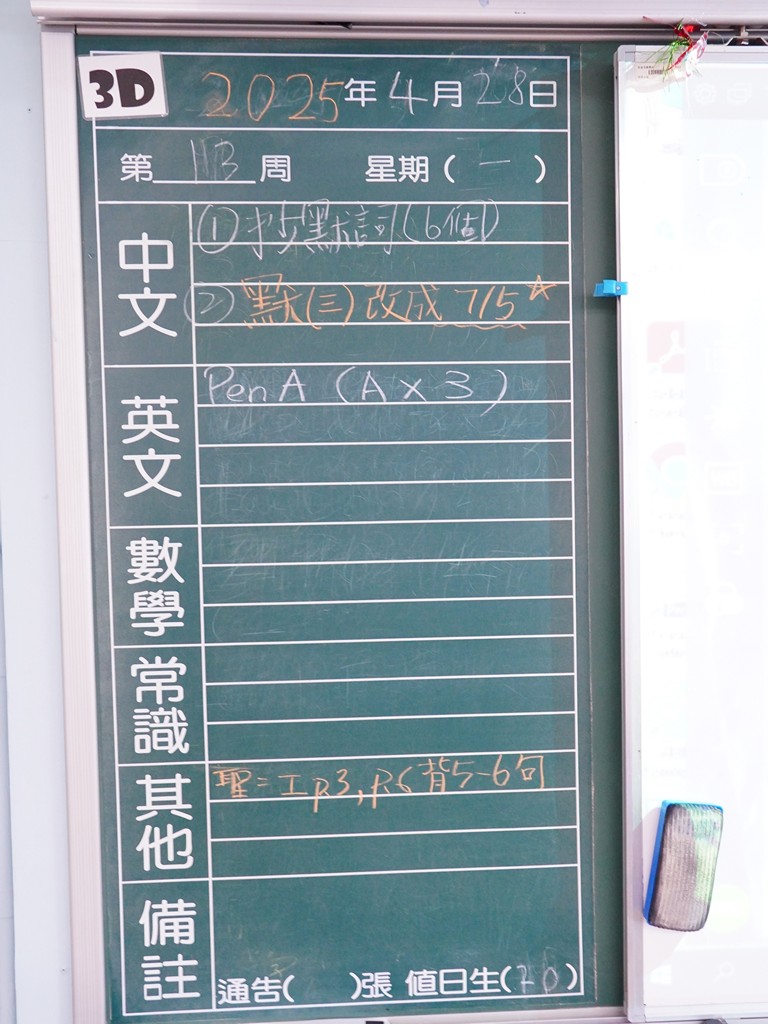 3D
2025年4月28日
第 周 星期(一)
中文
①抄默詞(6個)
②默(三)改成 7/5☆
英文
Pen A (A x 3)
數學
常識
其他
聖=工 p.3, p.6 背5-6句
備註
通告( )張 值日生( )